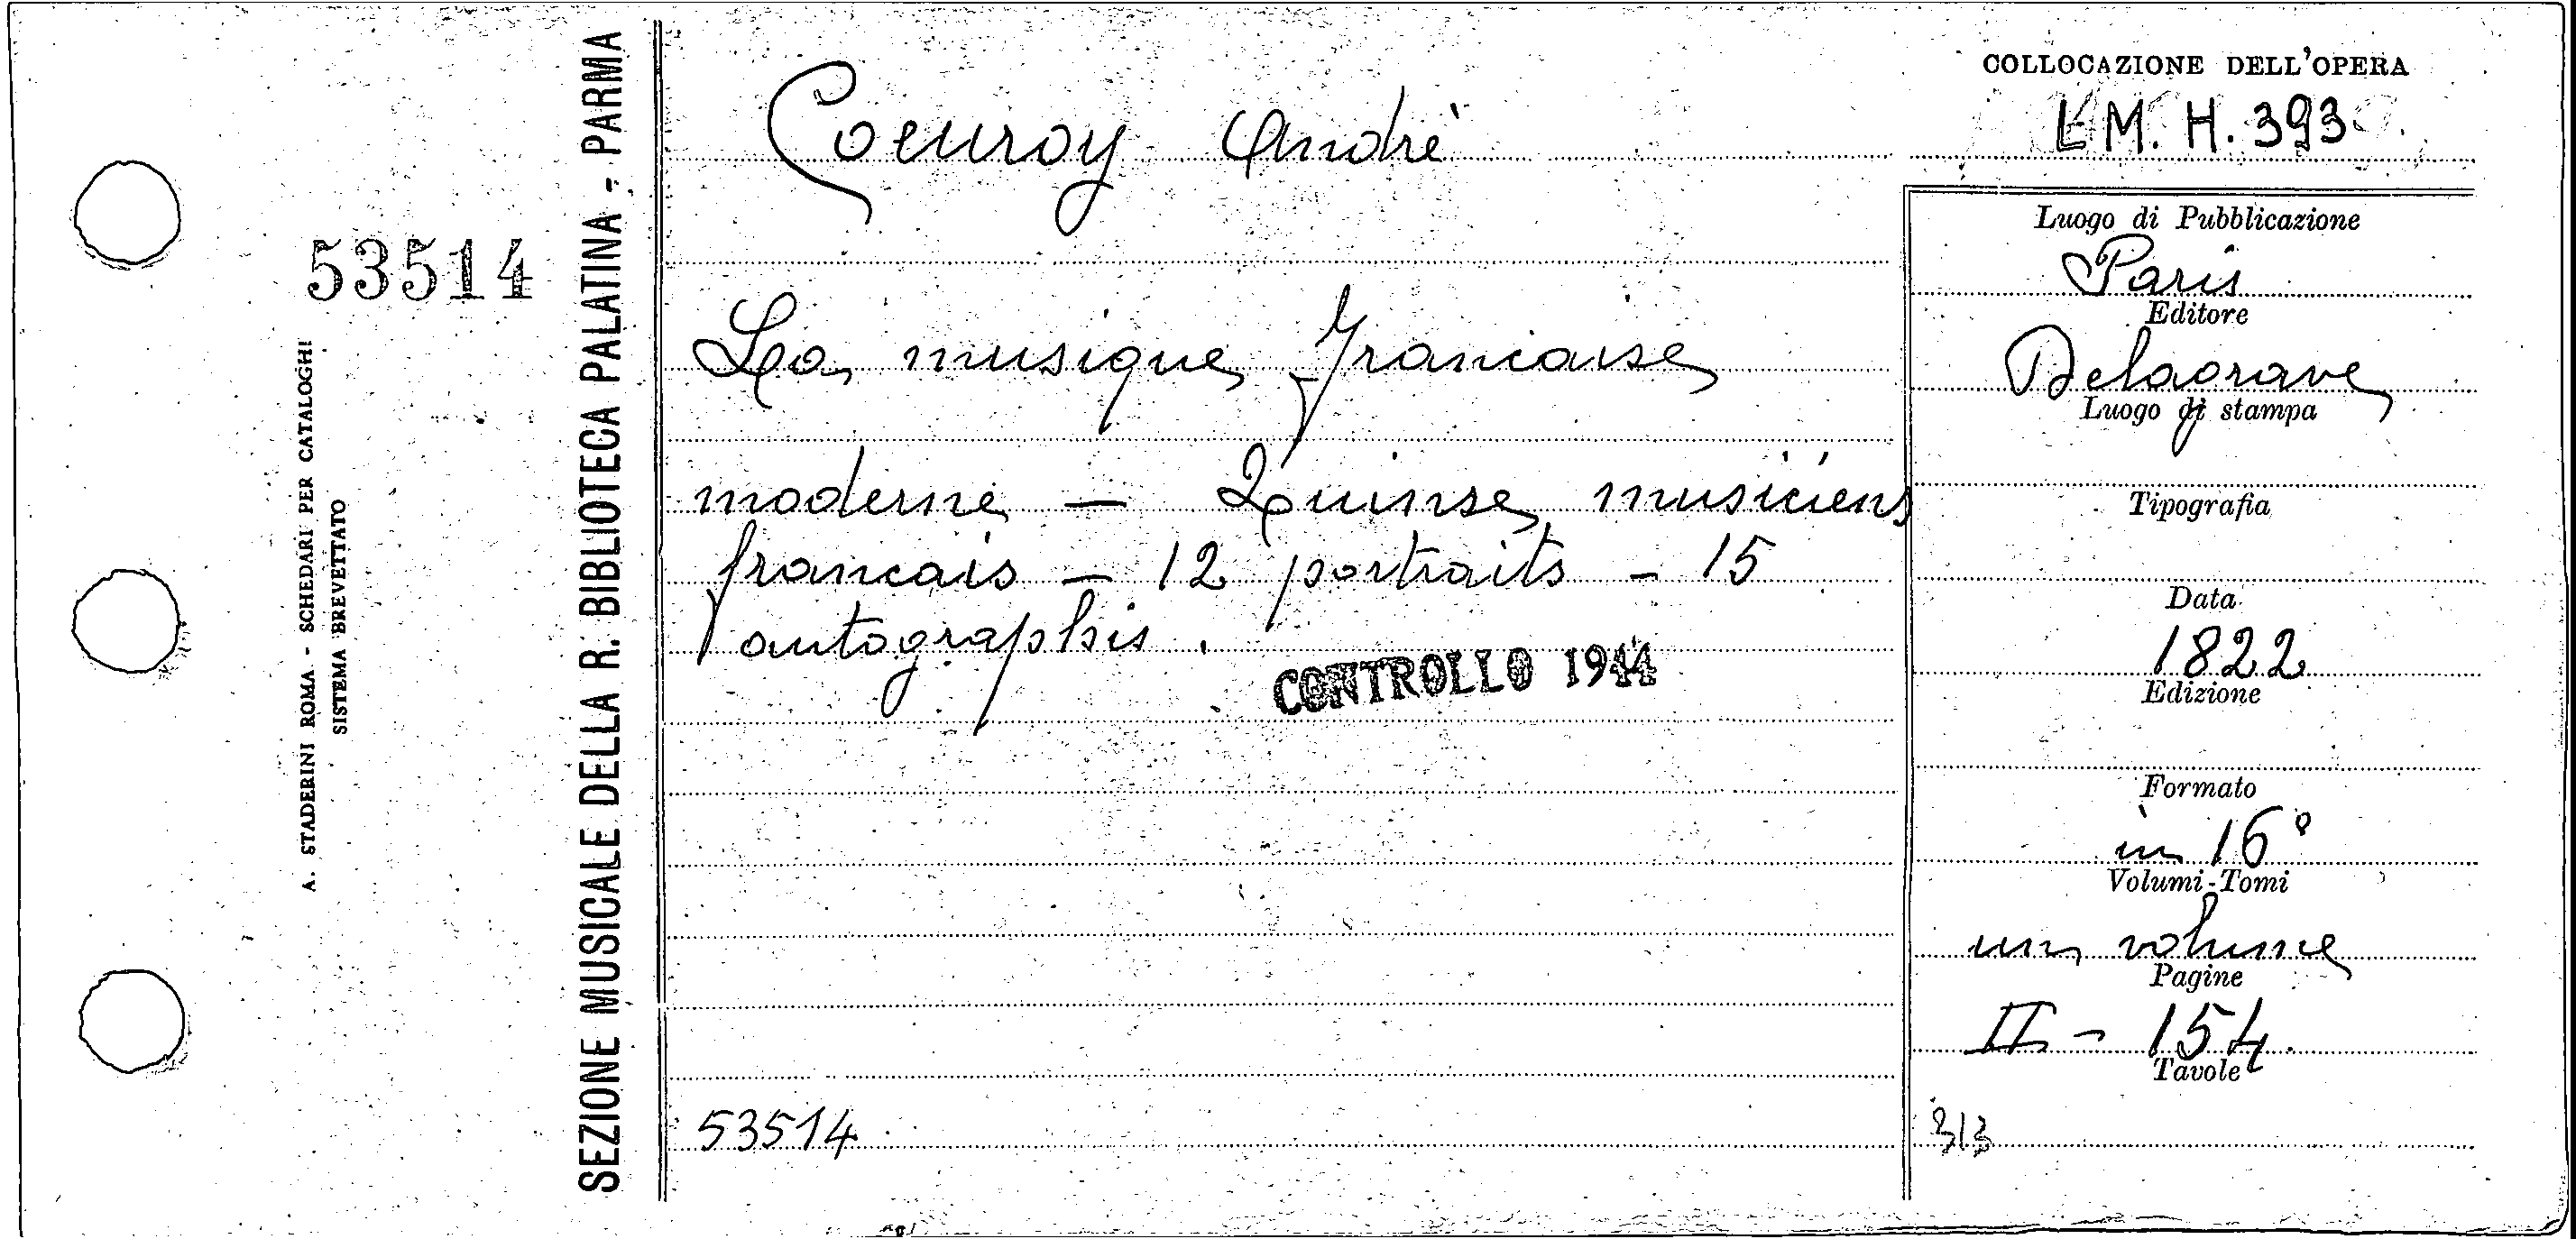 COLLOCAZIONE DELL'OPERA
L M. H. 393
53514
A. STADERINI ROMA - SCHEDARI PER CATALOGHI
SISTEMA BREVETTATO
SEZIONE MUSICALE DELLA R. BIBLIOTECA PALATINA - PARMA
Coeuroy André
La musique francaise
moderne - Quinse musiciens
francais - 12 portraits - 15
autographis.
CONTROLLO 1944
53514
Luogo di Pubblicazione
Paris
Editore
Delagrave
Luogo di stampa
Tipografia
Data
1822
Edizione
Formato
in 16°
Volumi-Tomi
un volume
Pagine
II - 154
Tavole
313